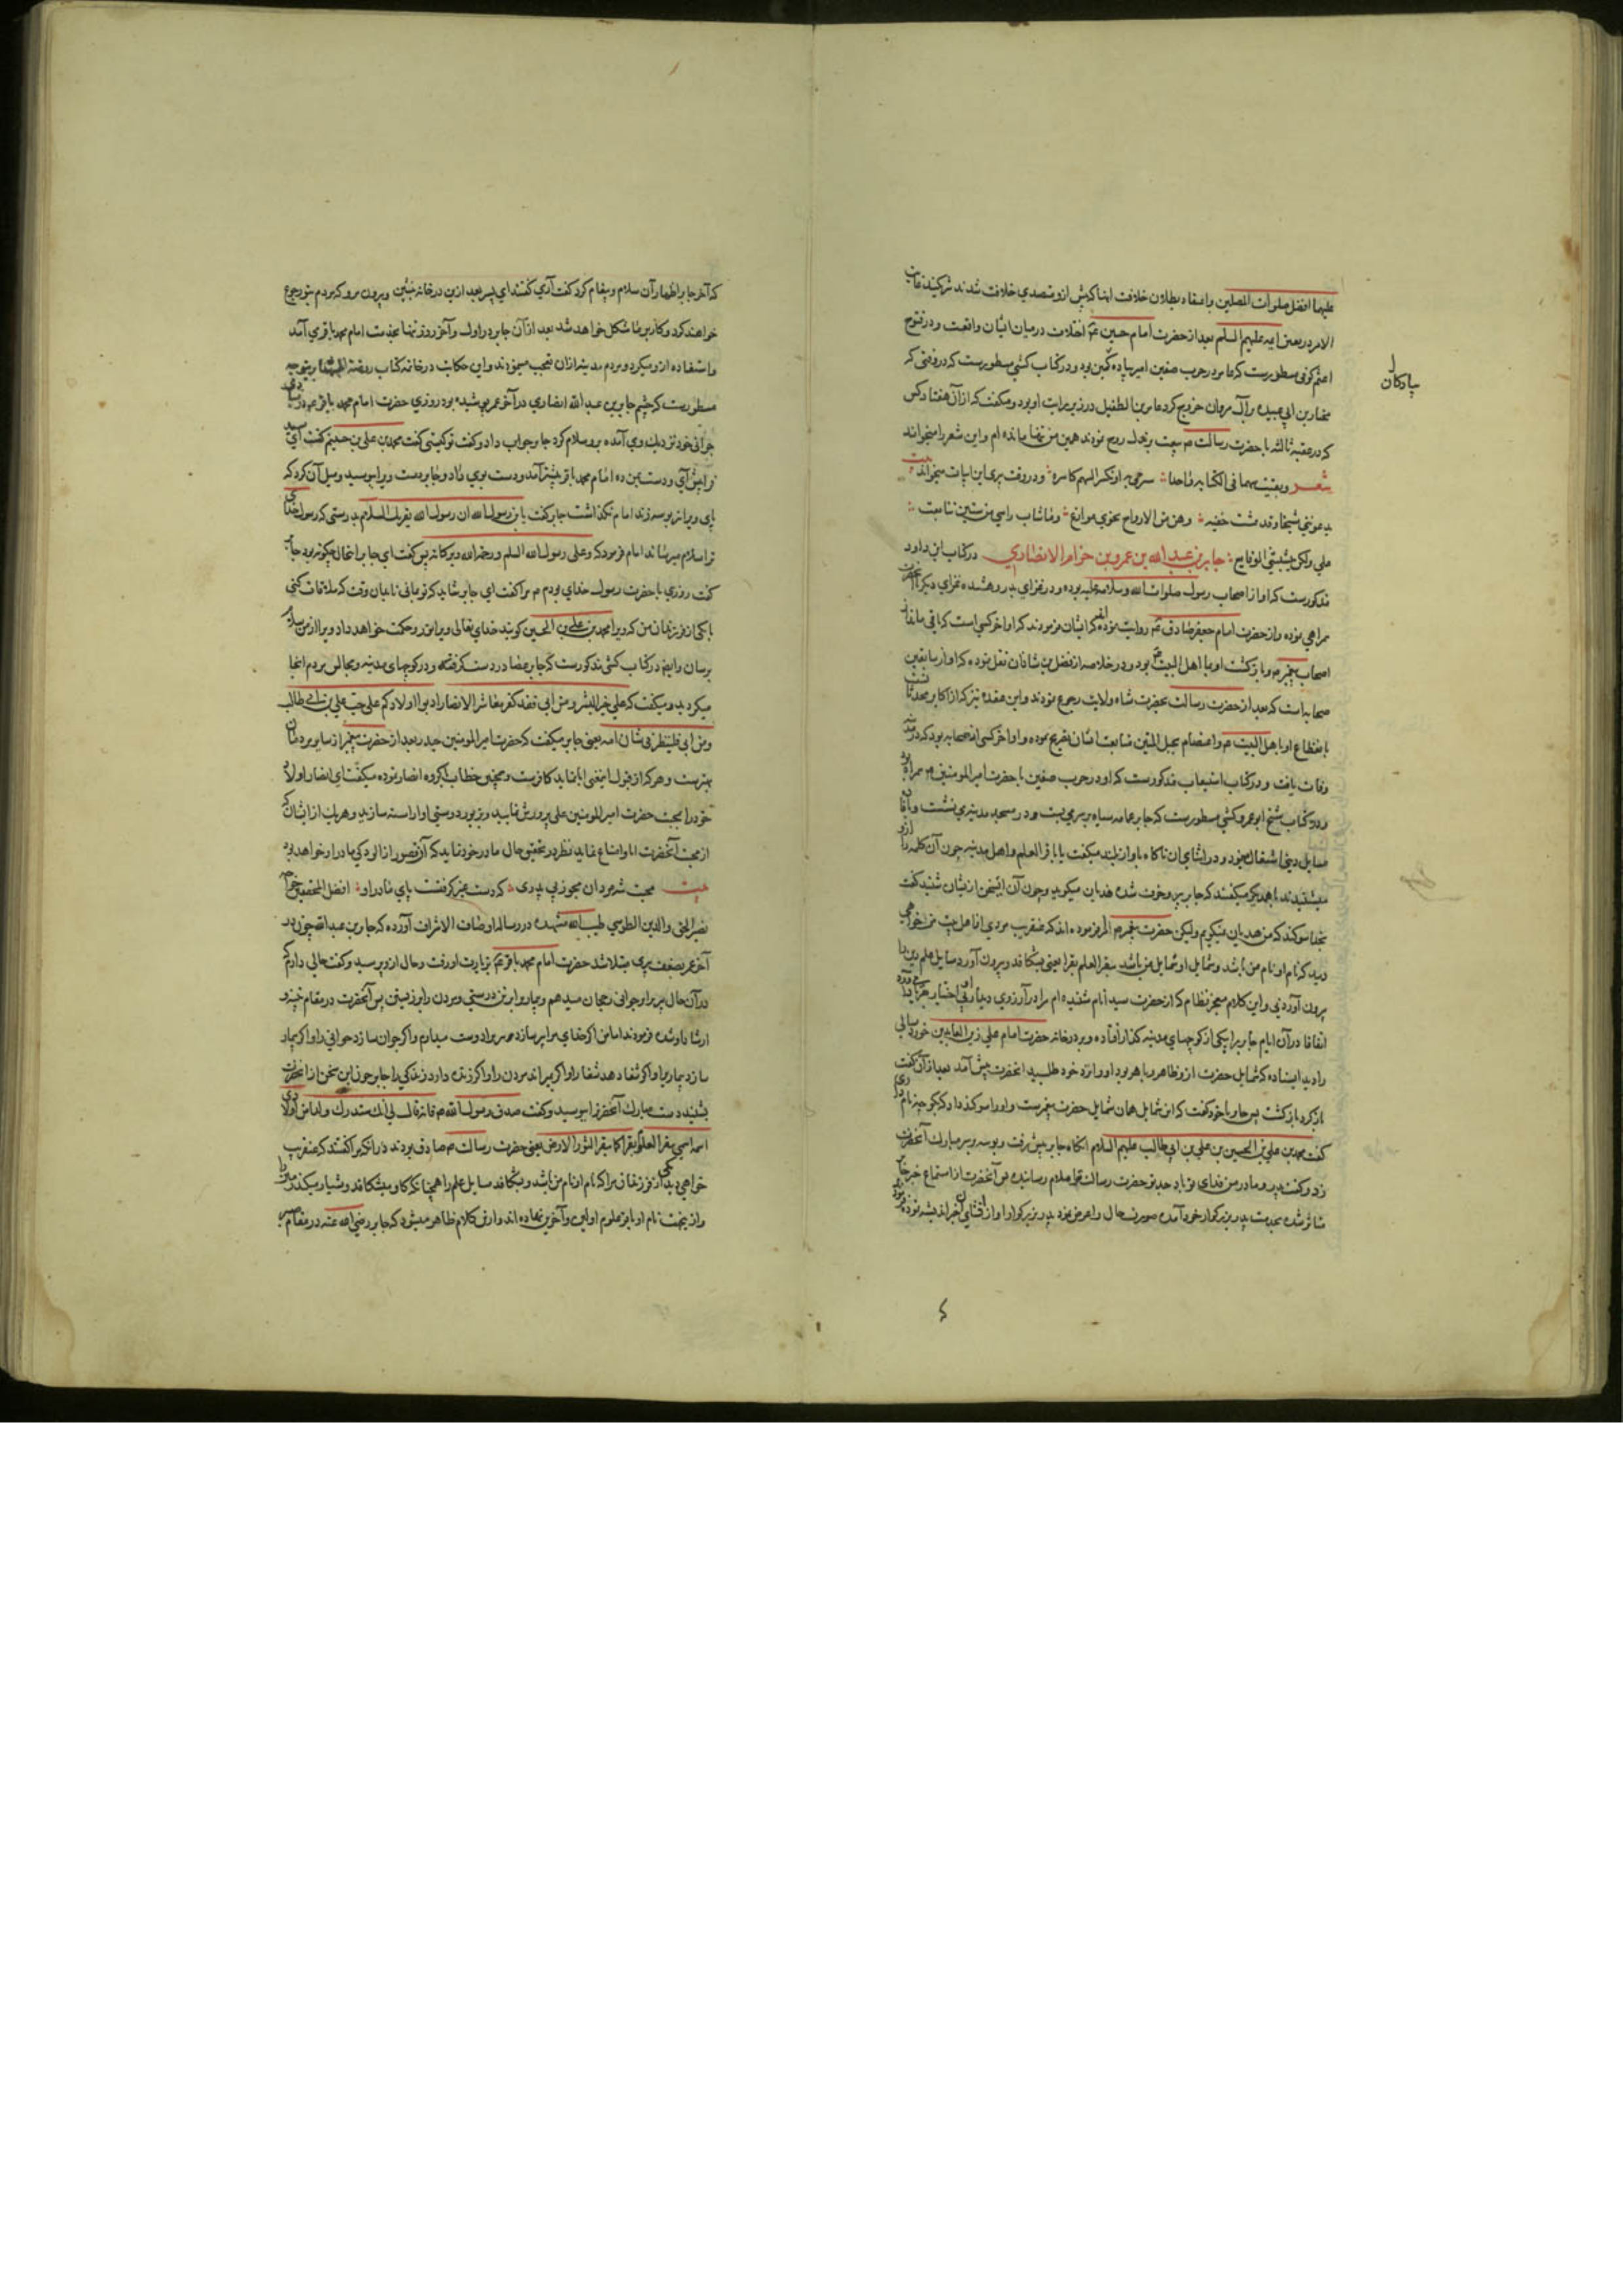 علیهما افضل صلوات المصلین و اعتقاد بطلان خلافت
الامر در تعیین ایمه علیهم السلم بعد از حضرت امام حسین ع م اختلاف در میان ایشان واقعست و در فتوح
اعثم کوفی مسطورست که عامر در حرب صفین و در کتاب کشی مسطورست که در وقتی که
مختار بن ابی عبیده بر آل مروان خروج کرد عامر بن الطفیل در زیر رایت او بود و میکفت که از آن هفتاد کس
که در عقبه ثالثه با حضرت رسالت م بیعت نموده بودند همین من تنها مانده ام و این شعر را میخواند
شعر وبقیت سهما فی الکنانه واحدا سیرمی به او یکسر السهم کاسره و در وقت پیری این ابیات میخواند بیت
یدعوننی شیخا وقد عشت حقبه وهن من الازواج نحوی نوازع وما شاب راسی من سنین تتابعت
علی ولکن شیبتنی الوقایع جابر بن عبد الله بن عمرو بن حزام الانصاری در کتاب ابن داود
مذکورست که او از اصحاب رسول صلوات الله وسلامه علیه بوده و در غزای بدر و هشده غزای دیکر با آنحضرت
همراهی نموده و از حضرت امام جعفر صادق ع م روایت نموده که ایشان فرمودند که او آخر کسی است که باقی مانده از
اصحاب پیغمبر م و بازکشت او با اهل البیت ع م بود و در خلاصه از فضل بن شاذان نقل نموده که او از سابقین
صحابه است که بعد از حضرت رسالت بحضرت شاه ولایت رجوع نمودند و ابن عقده نیز که از اکابر محدثانست
بانقطاع او باهل البیت م و اعتصام بحبل المتین متابعت ایشان تصریح نموده و او آخر کسی از صحابه بود که در مدینه
وفات یافت و در کتاب استیعاب مذکورست که او در حرب صفین با حضرت امیرالمومنین م همراه بود
و در کتاب شیخ ابو عمرو کشی مسطورست که جابر عمامه سیاه بر سر می بست و در مسجد مدینه می نشست و با
مسایل دینی اشتغال مینمود و در اثنای آن ناکاه باواز بلند میکفت یا باقر العلم و اهل مدینه چون آن کلمه را از او
میشنیدند با همدیکر میکفتند که جابر پیر و خرف شده هذیان میکوید و چون آن این سخن از ایشان شنید کفت
بخدا سوکند که من هذیان نمیکویم ولیکن حضرت پیغمبر م مرا فرموده اند که عنقریب مردی از اهل بیت من خواهی
دید که نام او نام من باشد و شمایل او شمایل من باشد یبقر العلم بقرا یعنی بشکافد و بیرون آورد مسایل علم دین را
بیرون آوردنی و این کلام معجز نظام که از حضرت سید انام شنیده ام مرا در آرزوی دیدار او بی اختیار
اتفاقا در آن ایام جابر را بیکی از کوچهای مدینه کذار افتاده و بر در خانه حضرت امام علی زین العابدین خورد سالی
را دید ایستاده که شمایل حضرت از و ظاهر و باهر بود او را نزد خود طلبید آنحضرت پیش آمد بعد از آن کفت
بازکرد بازکشت پس جابر با خود کفت که این شمایل همان شمایل حضرت پیغمبرست و او را سوکند داد که بکو چه نام داری
کفت محمد بن علی بن الحسین بن علی بن ابی طالب علیهم السلام انکاه جابر پیش رفت و بوسه بر سر مبارک آنحضرت
زد و کفت پدر و مادر من فدای تو باد جد تو حضرت رسالت ترا سلام رسانیده پس آنحضرت از استماع خبر جابر
متاثر شده بخدمت پدر بزرکوار خود آمده صورت حال را عرض نمود پدر بزرکوار او از افشای آن خبر اندیشه نموده فرمود
پادکان
که آخر جابر اظهار آن سلام و پیغام کرد کفت آری کفتند ای پسر بعد ازین در خانه بنشین و بیرون مرو که مردم بتو رجوع
خواهند کرد و کار بر ما مشکل خواهد شد بعد از آن جابر در اول و آخر روز تنها بخدمت امام محمد باقر می آمد
و استفاده از و میکرد و مردم مدینه از آن تعجب مینمودند و این حکایت در خاتمه کتاب روضة
مسطورست که چشم جابر بن عبد الله انصاری در آخر عمر پوشیده بود روزی حضرت امام محمد باقر ع م در مبادی
جوانی خود نزدیک وی آمده برو سلام کرد جابر جواب داد و کفت تو کیستی کفت محمد بن علی بن حسینم کفت ای سید
فرا پیش آی و دست بمن ده امام محمد باقر پیشتر آمد و دست بوی داد و جابر دست ویرا بوسید و میل آن کرد که
پای ویرا نیز بوسه زند امام نکذاشت جابر کفت یا بن رسول الله ان رسول الله یقریک السلام بدرستی که رسول خدای
ترا سلام میرساند امام فرمود که وعلی رسول الله السلم ورحمة الله وبرکاته پس کفت ای جابر این حال چکونه بود جابر
کفت روزی با حضرت رسول خدای بودم م مرا کفت ای جابر شاید که تو بمانی تا بدان وقت که ملاقات کنی
با یکی از فرزندان من که ویرا محمد بن علی بن الحسین کویند خدای تعالی ویرا نور و حکمت خواهد داد ویرا از من سلام
برسان و ایضا در کتاب کشی مذکورست که جابر عصا در دست کرفته و در کوچهای مدینه و مجالس مردم آنجا
میکردید و میکفت که علی خیر البشر ومن ابی فقد کفر یا معاشر الانصار ادبوا اولادکم علی حب علی بن ابی طالب
ومن ابی فلینظر فی شان امه یعنی جابر میکفت که حضرت امیر المومنین حیدر بعد از حضرت پیغمبر از سایر مردمان
بهترست و هر که از قبول این معنی ابا نماید کافرست و همچنین خطاب بکروه انصار نموده میکفت ای انصار اولاد
خود را بمحبت حضرت امیر المومنین علی پرورش نمایید و بزیور دوستی او آراسته سازید و هر یک از ایشان که
از محبت آنحضرت ابا و امتناع نماید نظر در تحقیق حال مادر خود نماید که آن قصور از آلودکی مادر او خواهد بود
بیت محبت شه مردان مجو ز بی پدری که دست غیر کرفتست پای مادر او افضل المحققین خواجه
نصیر الحق والدین الطوسی طیب الله مشهده در رساله اوصاف الاشراف آورده که جابر بن عبد الله چون در
آخر عمر بضعف پیری مبتلا شد حضرت امام محمد باقر ع م بزیارت او رفت و حال او پرسید و کفت حالی دارم که
در آن حال پیری را بر جوانی رجحان میدهم و بیماری را بر تن درستی و مردن را بر زیستن پس آنحضرت در مقام
ارشاد او شده فرمودند اما من اکر خدای مرا پیر سازد پیری را دوست میدارم و اکر جوان سازد جوانی را و اکر بیمار
سازد بیماری را و اکر شفا دهد شفا را و اکر بمیراند مردن را و اکر زنده دارد زندکی را جابر چون این سخن از آنحضرت
بشنید دست مبارک آنحضرت را بوسید و کفت صدق رسول الله م فانه قال لی انک ستدرک واحدا من اولادی
اسمه اسمی یبقر العلم بقرا کما یبقر الثور الارض یعنی حضرت رسالت م صادق بودند در آنکه مرا کفتند که عنقریب
خواهی دید یکی از فرزندان مرا که نام او نام من باشد و بشکافد مسایل علم را همچنانکه کاو میشکافد و شیار میکند زمین را
و از ینجهت نام او باقر علوم اولین و آخرین نهاده اند و ازین کلام ظاهر میشود که جابر رضی الله عنه در مقام صبر